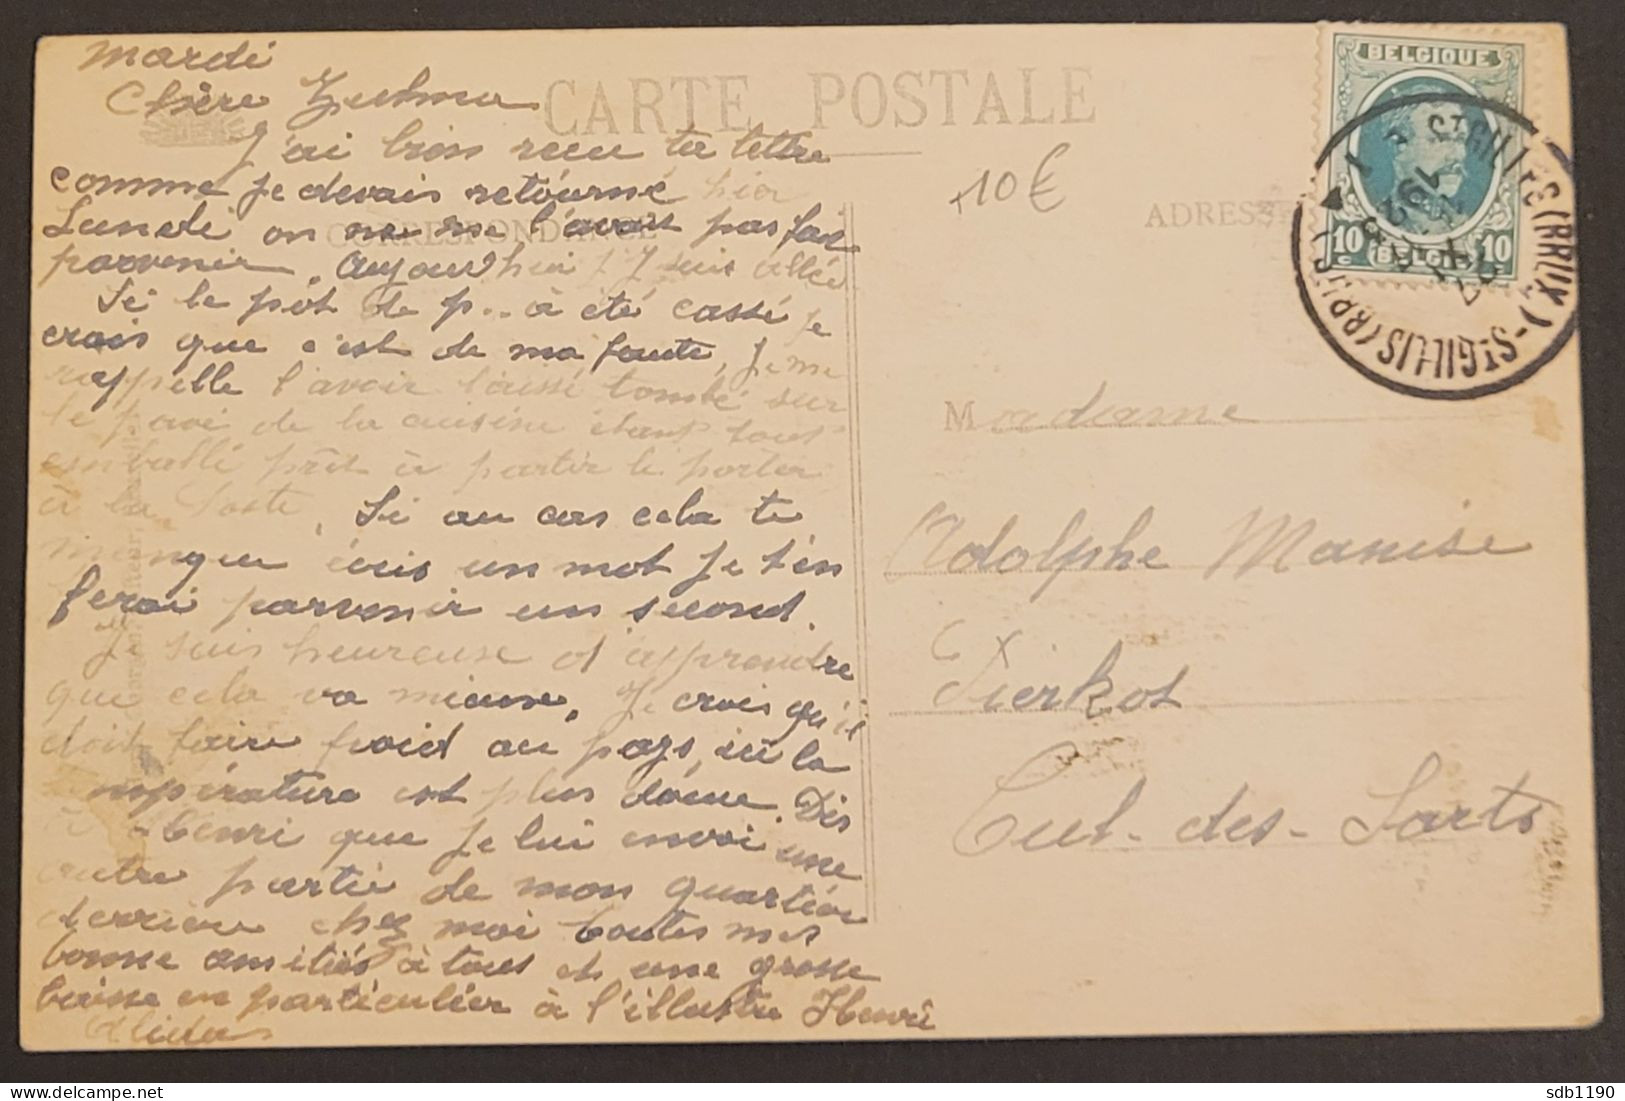 mardi
Chère Zulma
J'ai bien reçu ta lettre
comme je devais retourné hier
Lundi on ne me l'avait pas fait
parvenir. Aujourd'hui j'y suis allée
Si le pôt de p... à été cassé je
crois que c'est de ma faute, je me
rappelle l'avoir laissé tombé sur
le pavé de la cuisine étant tout
emballé prêt à partir le porter
à la Poste. Si au cas cela te
manque écris un mot je t'en
ferai parvenir un second.
Je suis heureuse d'apprendre
que cela va mieux, je crois qu'il
doit faire froid au pays, ici la
température est plus douce. Dis
à Henri que je lui envoi une
autre partie de mon quartier
derrière chez moi toutes mes
bonne amitiés à tous et une grosse
baise en particulier à l'illustre Henri
Alida
CARTE POSTALE
CORRESPONDANCE
ADRESSE
+10€
BELGIQUE
10 c
BELGIE
10 c
ST GILLES (BRUX.) - ST GILLIS (BRUS.)
Madame
Adolphe Manise
Fierkot
Cul-des-Sarts
sdb1190